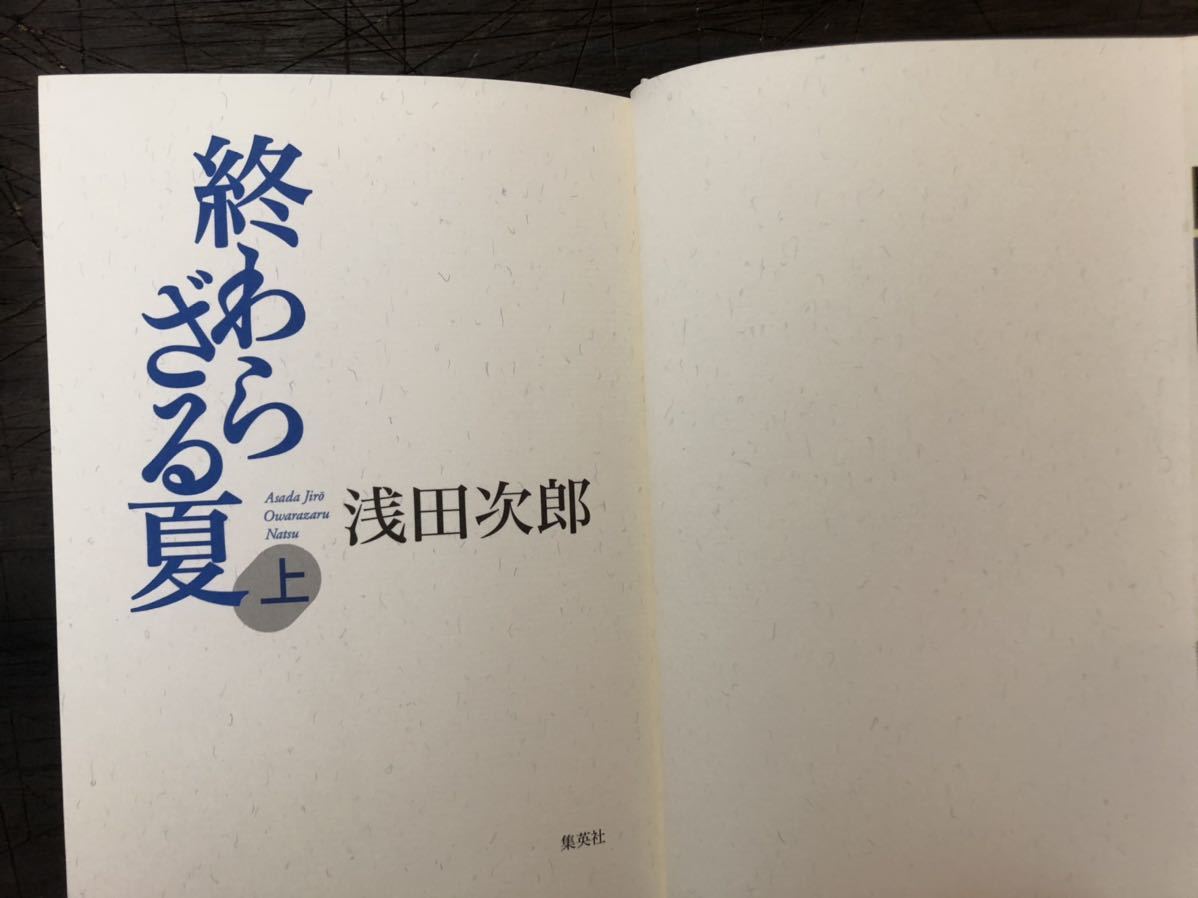 終わら
ざる夏
上
Asada Jirō
Owarazaru
Natsu
浅田次郎
集英社